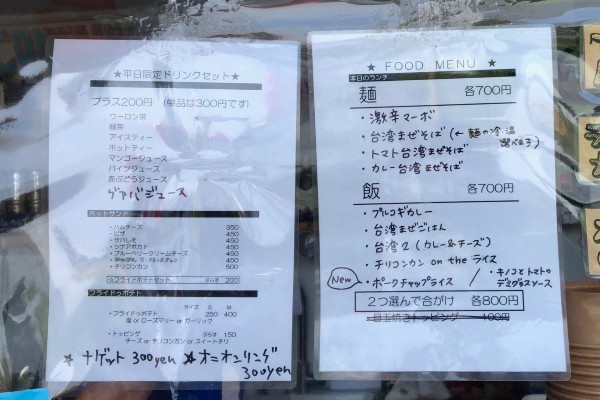 ★平日限定ドリンクセット★
プラス200円 (単品は300円です)
ウーロン茶
緑茶
アイスティー
ホットティー
マンゴージュース
パインジュース
赤ぶどうジュース
グァバジュース
ホットサンド
・ハムチーズ 350
・ピザ 450
・サバしそ 450
・ツナアボカド 450
・ブルーベリークリームチーズ 450
・チリコンカン 500
☆フライドポテトセット ぷらす 200
フライドゥポテト
サイズ S M
・フライドゥポテト 250 400
塩 or ローズマリー or ガーリック
・トッピング ぷらす 150
チーズ or チリコンカン or スイートチリ
☆ナゲット 300yen ☆オニオンリング
300yen
★ FOOD MENU ★
本日のランチ
麺 各700円
・激辛マーボ
・台湾まぜそば (← 麺の冷温
選べます)
・トマト台湾まぜそば
・カレー台湾まぜそば
飯 各700円
・プルコギカレー
・台湾まぜごはん
・台湾2 (カレー&チーズ)
・チリコンカン on the ライス
New ・ポークチャップライス / ・キノコとトマトの
デミグラスソース
2つ選んで合がけ 各800円
目玉焼きトッピング 100円